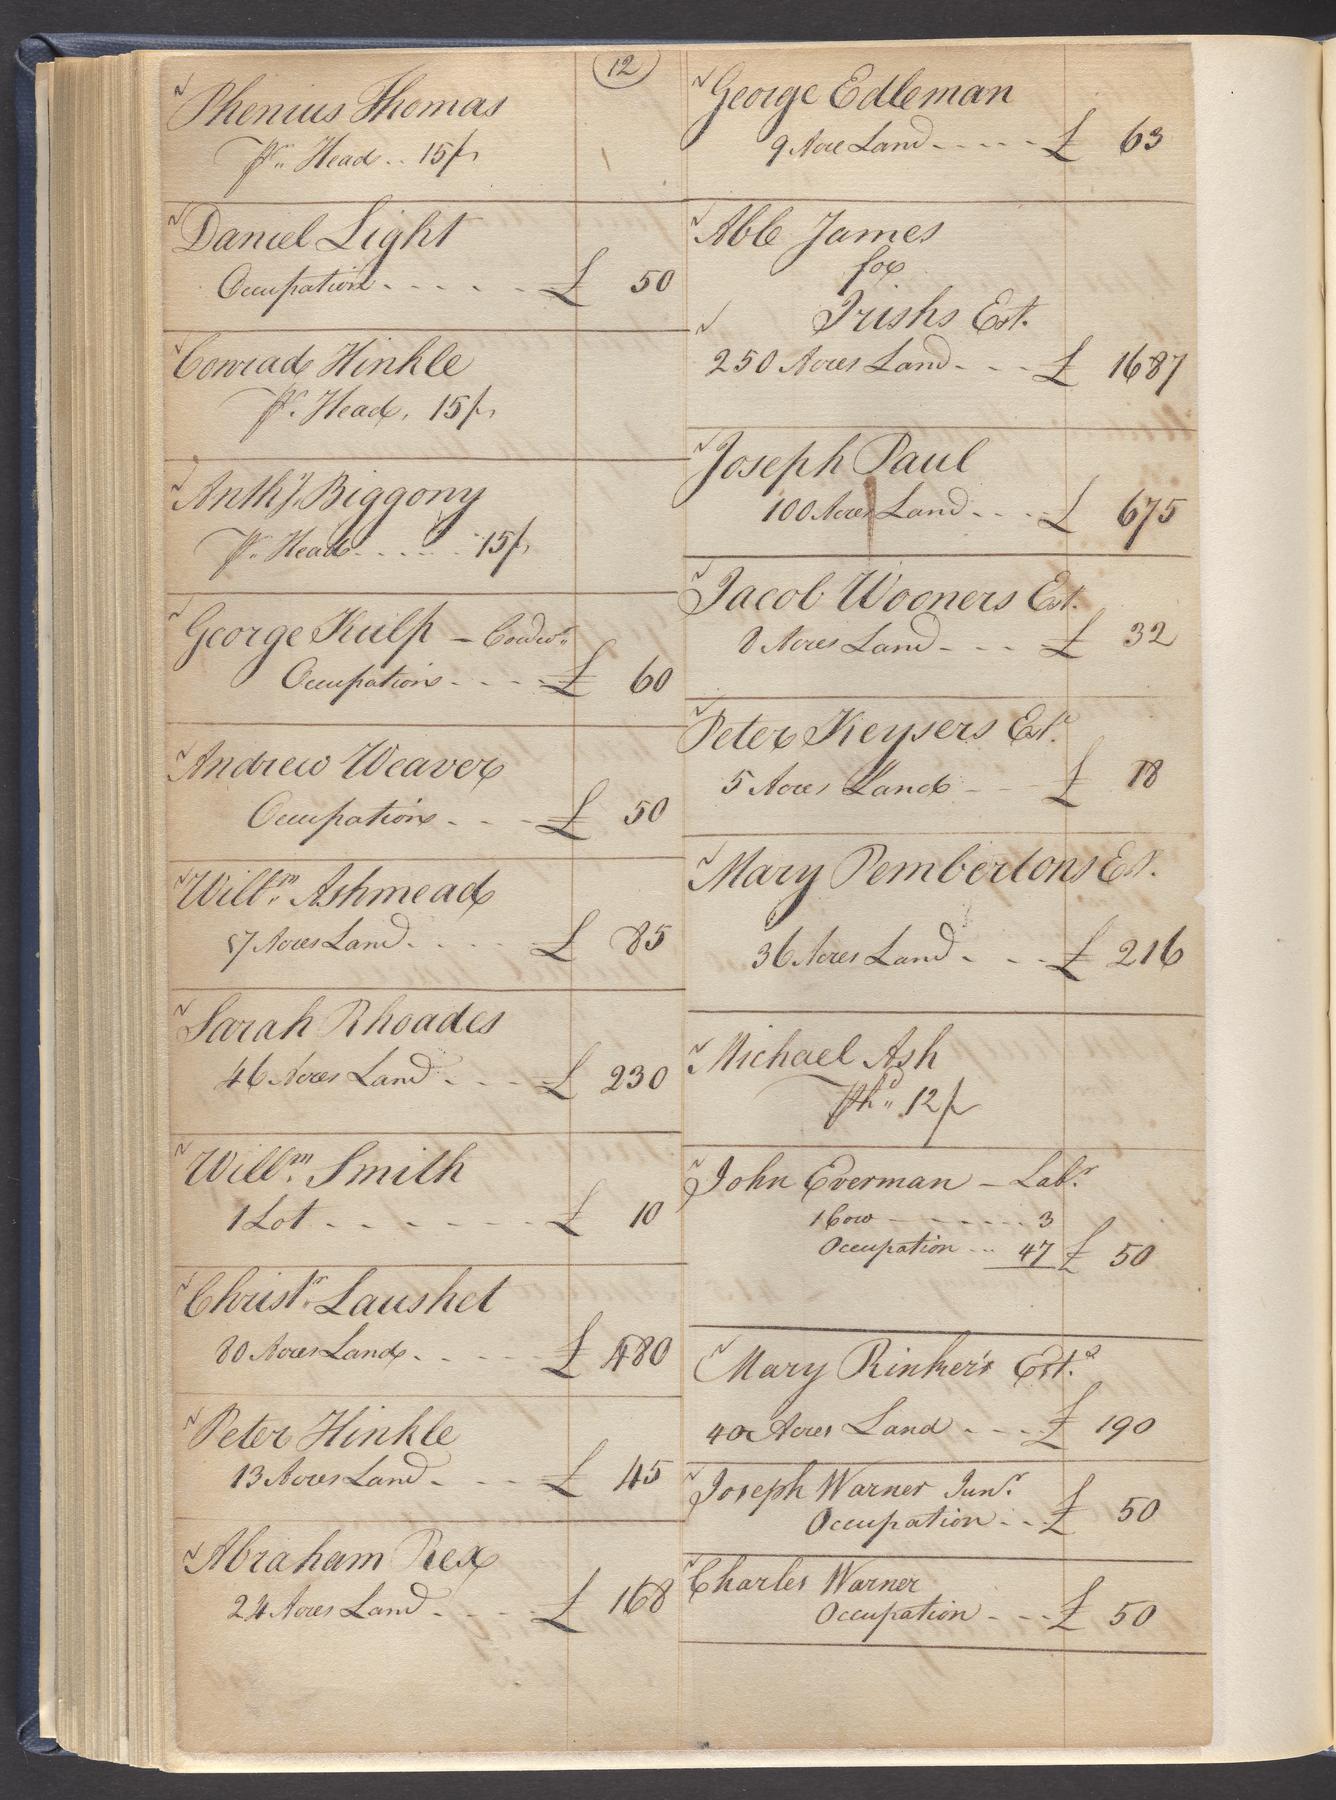 12
Phenius Thomas
Pr. Head .. 15/
Daniel Light
Occupation £ 50
Conrad Hinkle
Pr. Head. 15/
Anthy. Biggony
Pr. Head 15/
George Kulp - Cordwr.
Occupation £ 60
Andrew Weaver
Occupation £ 50
Willm. Ashmead
17 Acres Land £ 85
Sarah Rhoades
46 Acres Land £ 230
Willm. Smith
1 Lot £ 10
Christr. Laushet
80 Acres Land £ 480
Peter Hinkle
13 Acres Land £ 45
Abraham Rex
24 Acres Land £ 168
George Edleman
9 Acre Land £ 63
Able James
for
Irishs Est.
250 Acres Land £ 1687
Joseph Paul
100 Acres Land £ 675
Jacob Wooners Est.
8 Acres Land £ 32
Peter Keysers Este.
5 Acres Land £ 18
Mary Pembertons Est.
36 Acres Land £ 216
Michael Ash
Phd. 12/
John Everman - Labr.
1 Cow 3
Occupation 47 £ 50
Mary Rinker's Este.
40 Acres Land £ 190
Joseph Warner Junr.
Occupation £ 50
Charles Warner
Occupation £ 50